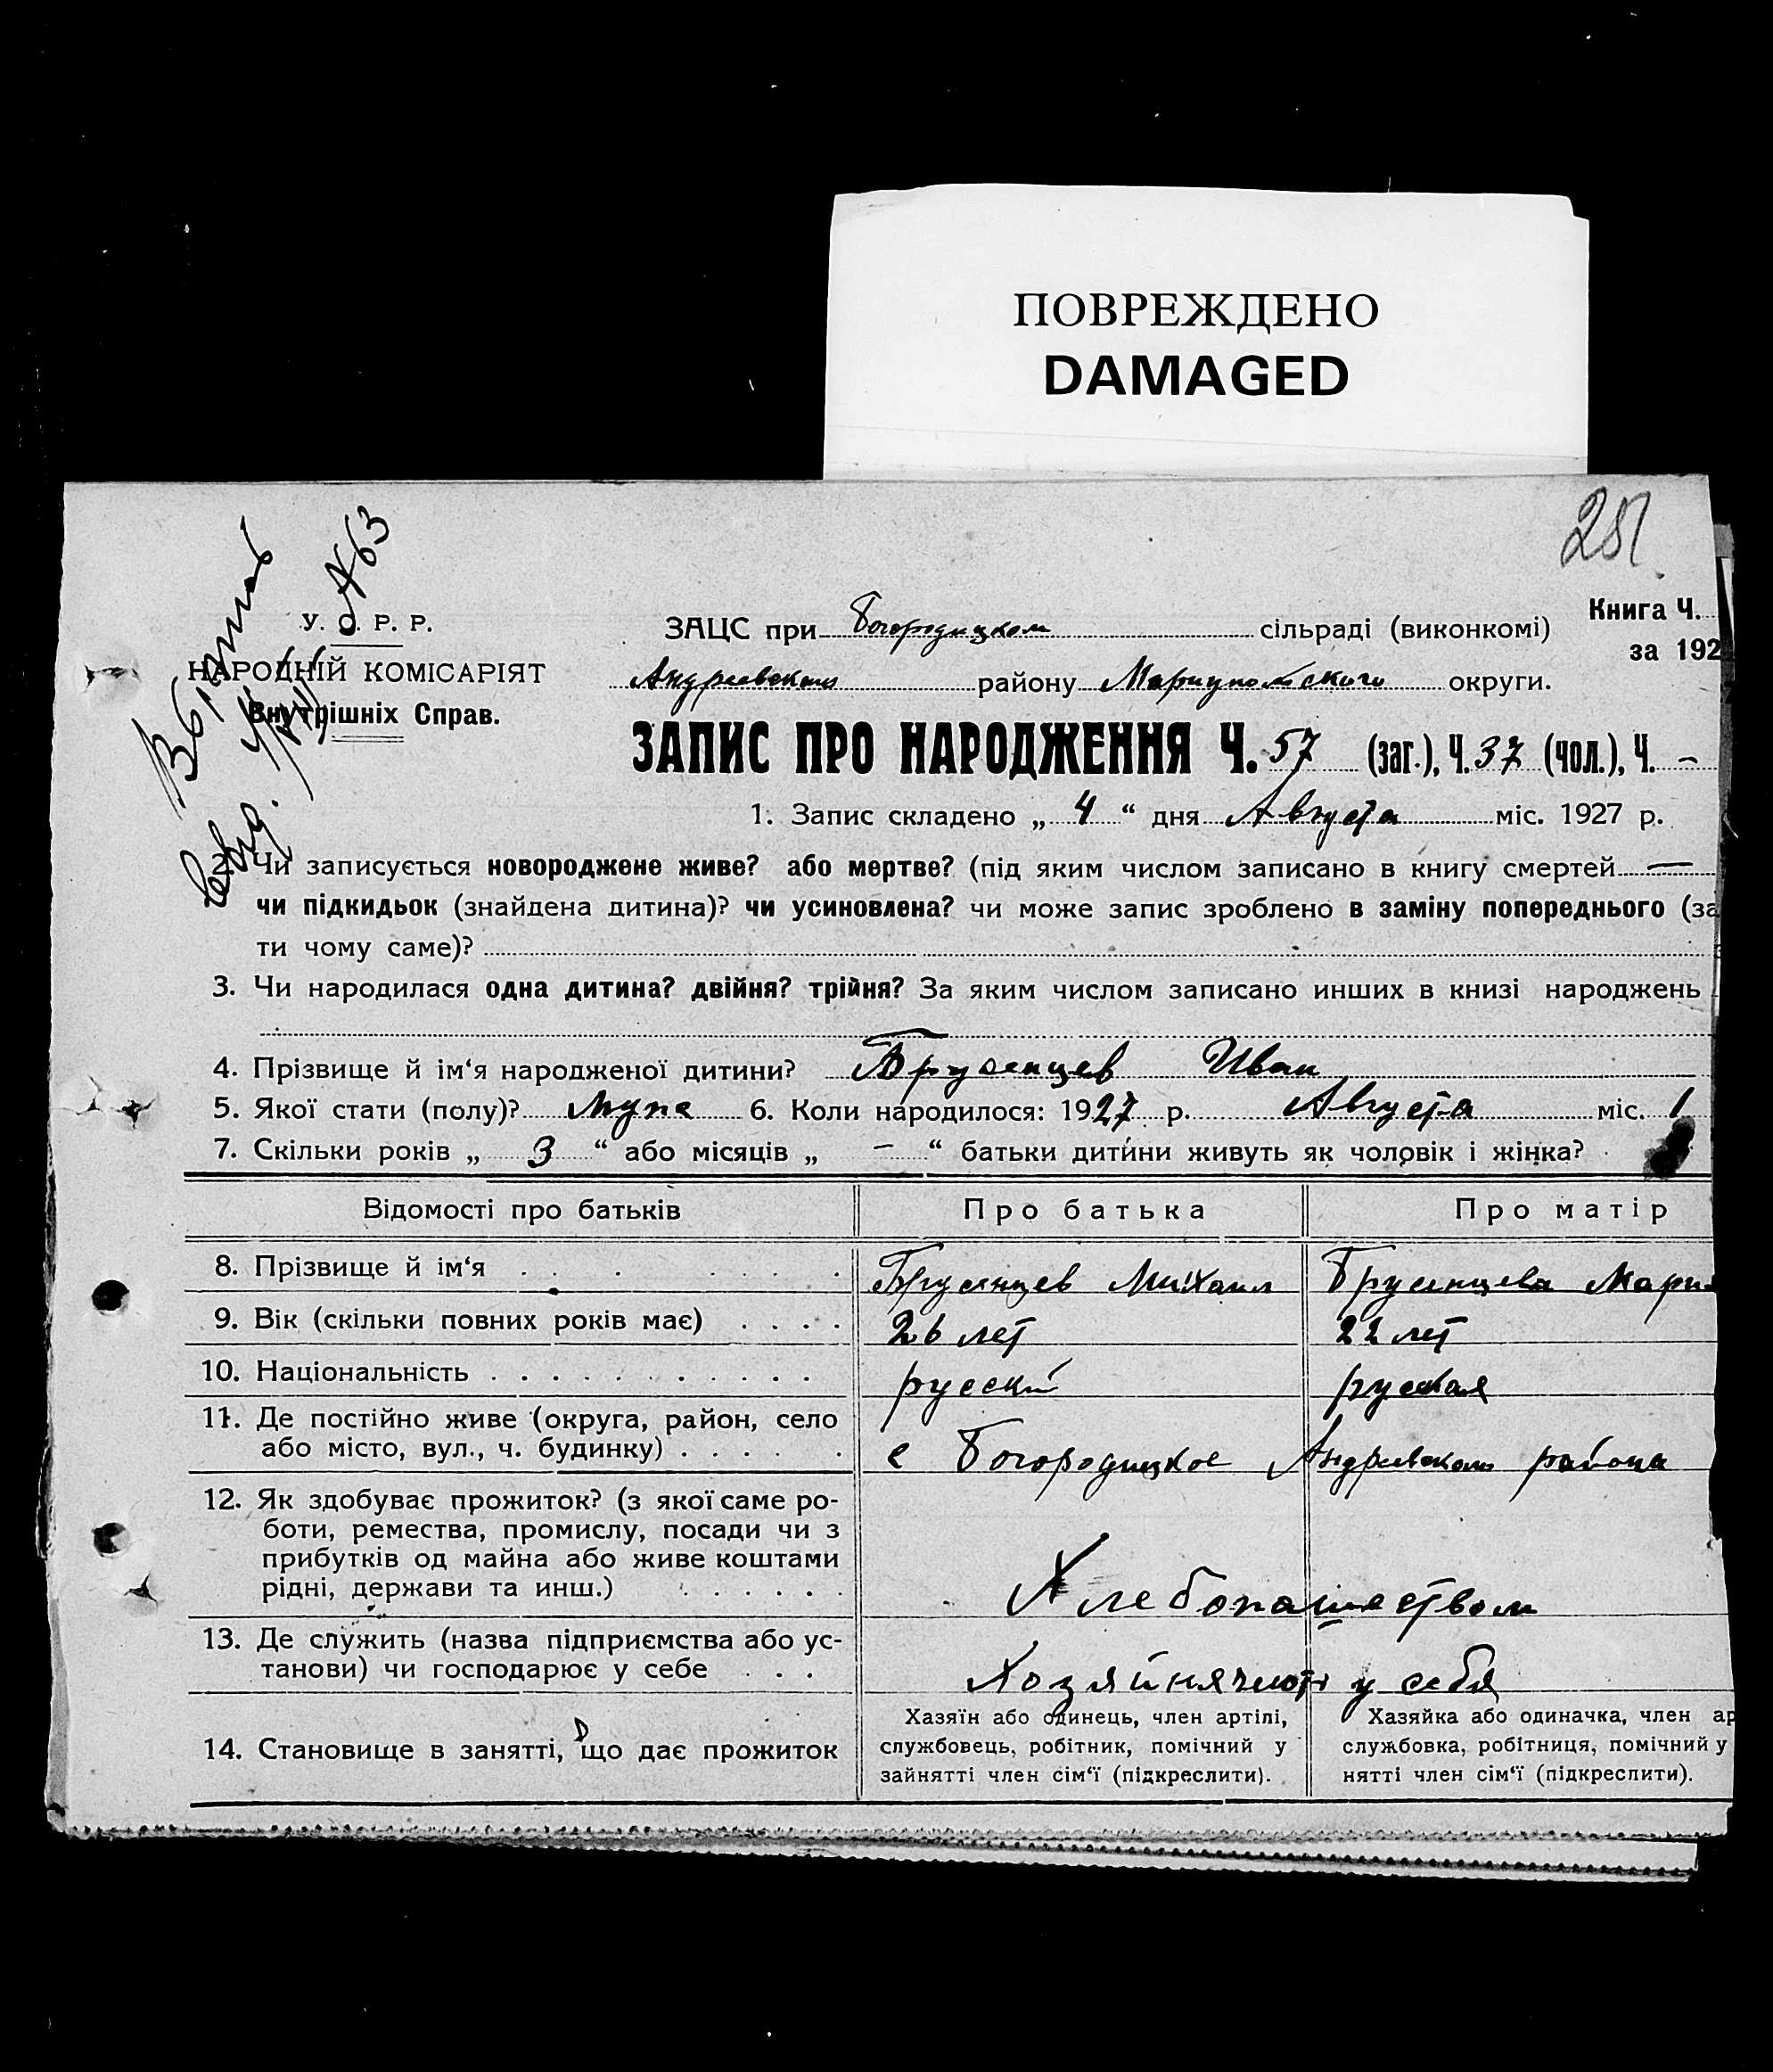 ПОВРЕЖДЕНО
DAMAGED
281.
№63
У. С. Р. Р.
НАРОДНІЙ КОМІСАРІЯТ
Внутрішніх Справ.
ЗАЦС при Богородицком сільраді (виконкомі)
Книга Ч.
за 192
Андреевского району Мариупольского округи.
ЗАПИС ПРО НАРОДЖЕННЯ Ч. 57 (заг.), Ч. 37 (чол.), Ч. –
1. Запис складено „ 4 “ дня Августа міс. 1927 р.
Чи записується новороджене живе? або мертве? (під яким числом записано в книгу смертей —
чи підкидьок (знайдена дитина)? чи усиновлена? чи може запис зроблено в заміну попереднього (за
ти чому саме)?
3. Чи народилася одна дитина? двійня? трійня? За яким числом записано инших в книзі народжень
4. Прізвище й ім‘я народженої дитини? Брусенцев Иван
5. Якої стати (полу)? муж 6. Коли народилося: 1927 р. Августа міс. 1
7. Скільки років „ 3 “ або місяців „ – “ батьки дитини живуть як чоловік і жінка?
Відомості про батьків Про батька Про матір
8. Прізвище й ім‘я . . . . . . . Брусянцев Михаил Брусенцева Мари
9. Вік (скільки повних років має) . . . . 26 лет 22 лет
10. Національність . . . . . . . . . . . русский руская
11. Де постійно живе (округа, район, село
або місто, вул., ч. будинку) . . . . . с Богородицкое Андреевского района
12. Як здобуває прожиток? (з якої саме ро-
боти, ремества, промислу, посади чи з
прибутків од майна або живе коштами
рідні, держави та инш.) . . . . . . Хлебопашеством
13. Де служить (назва підприємства або ус-
танови) чи господарює у себе . . . Хозяйнячют у себя
14. Становище в занятті, що дає прожиток
Хазяїн або одинець, член артілі,
службовець, робітник, помічний у
зайнятті член сім‘ї (підкреслити).
Хазяйка або одиначка, член ар
службовка, робітниця, помічний у
нятті член сім‘ї (підкреслити).